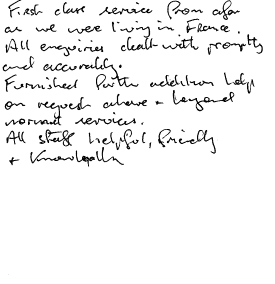 First class service from afar
as we were living in France.
All enquiries dealt with promptly
and accurately.
Furnished further addition help
on request above + beyond
normal services.
All staff helpful, friendly
+ knowledgable